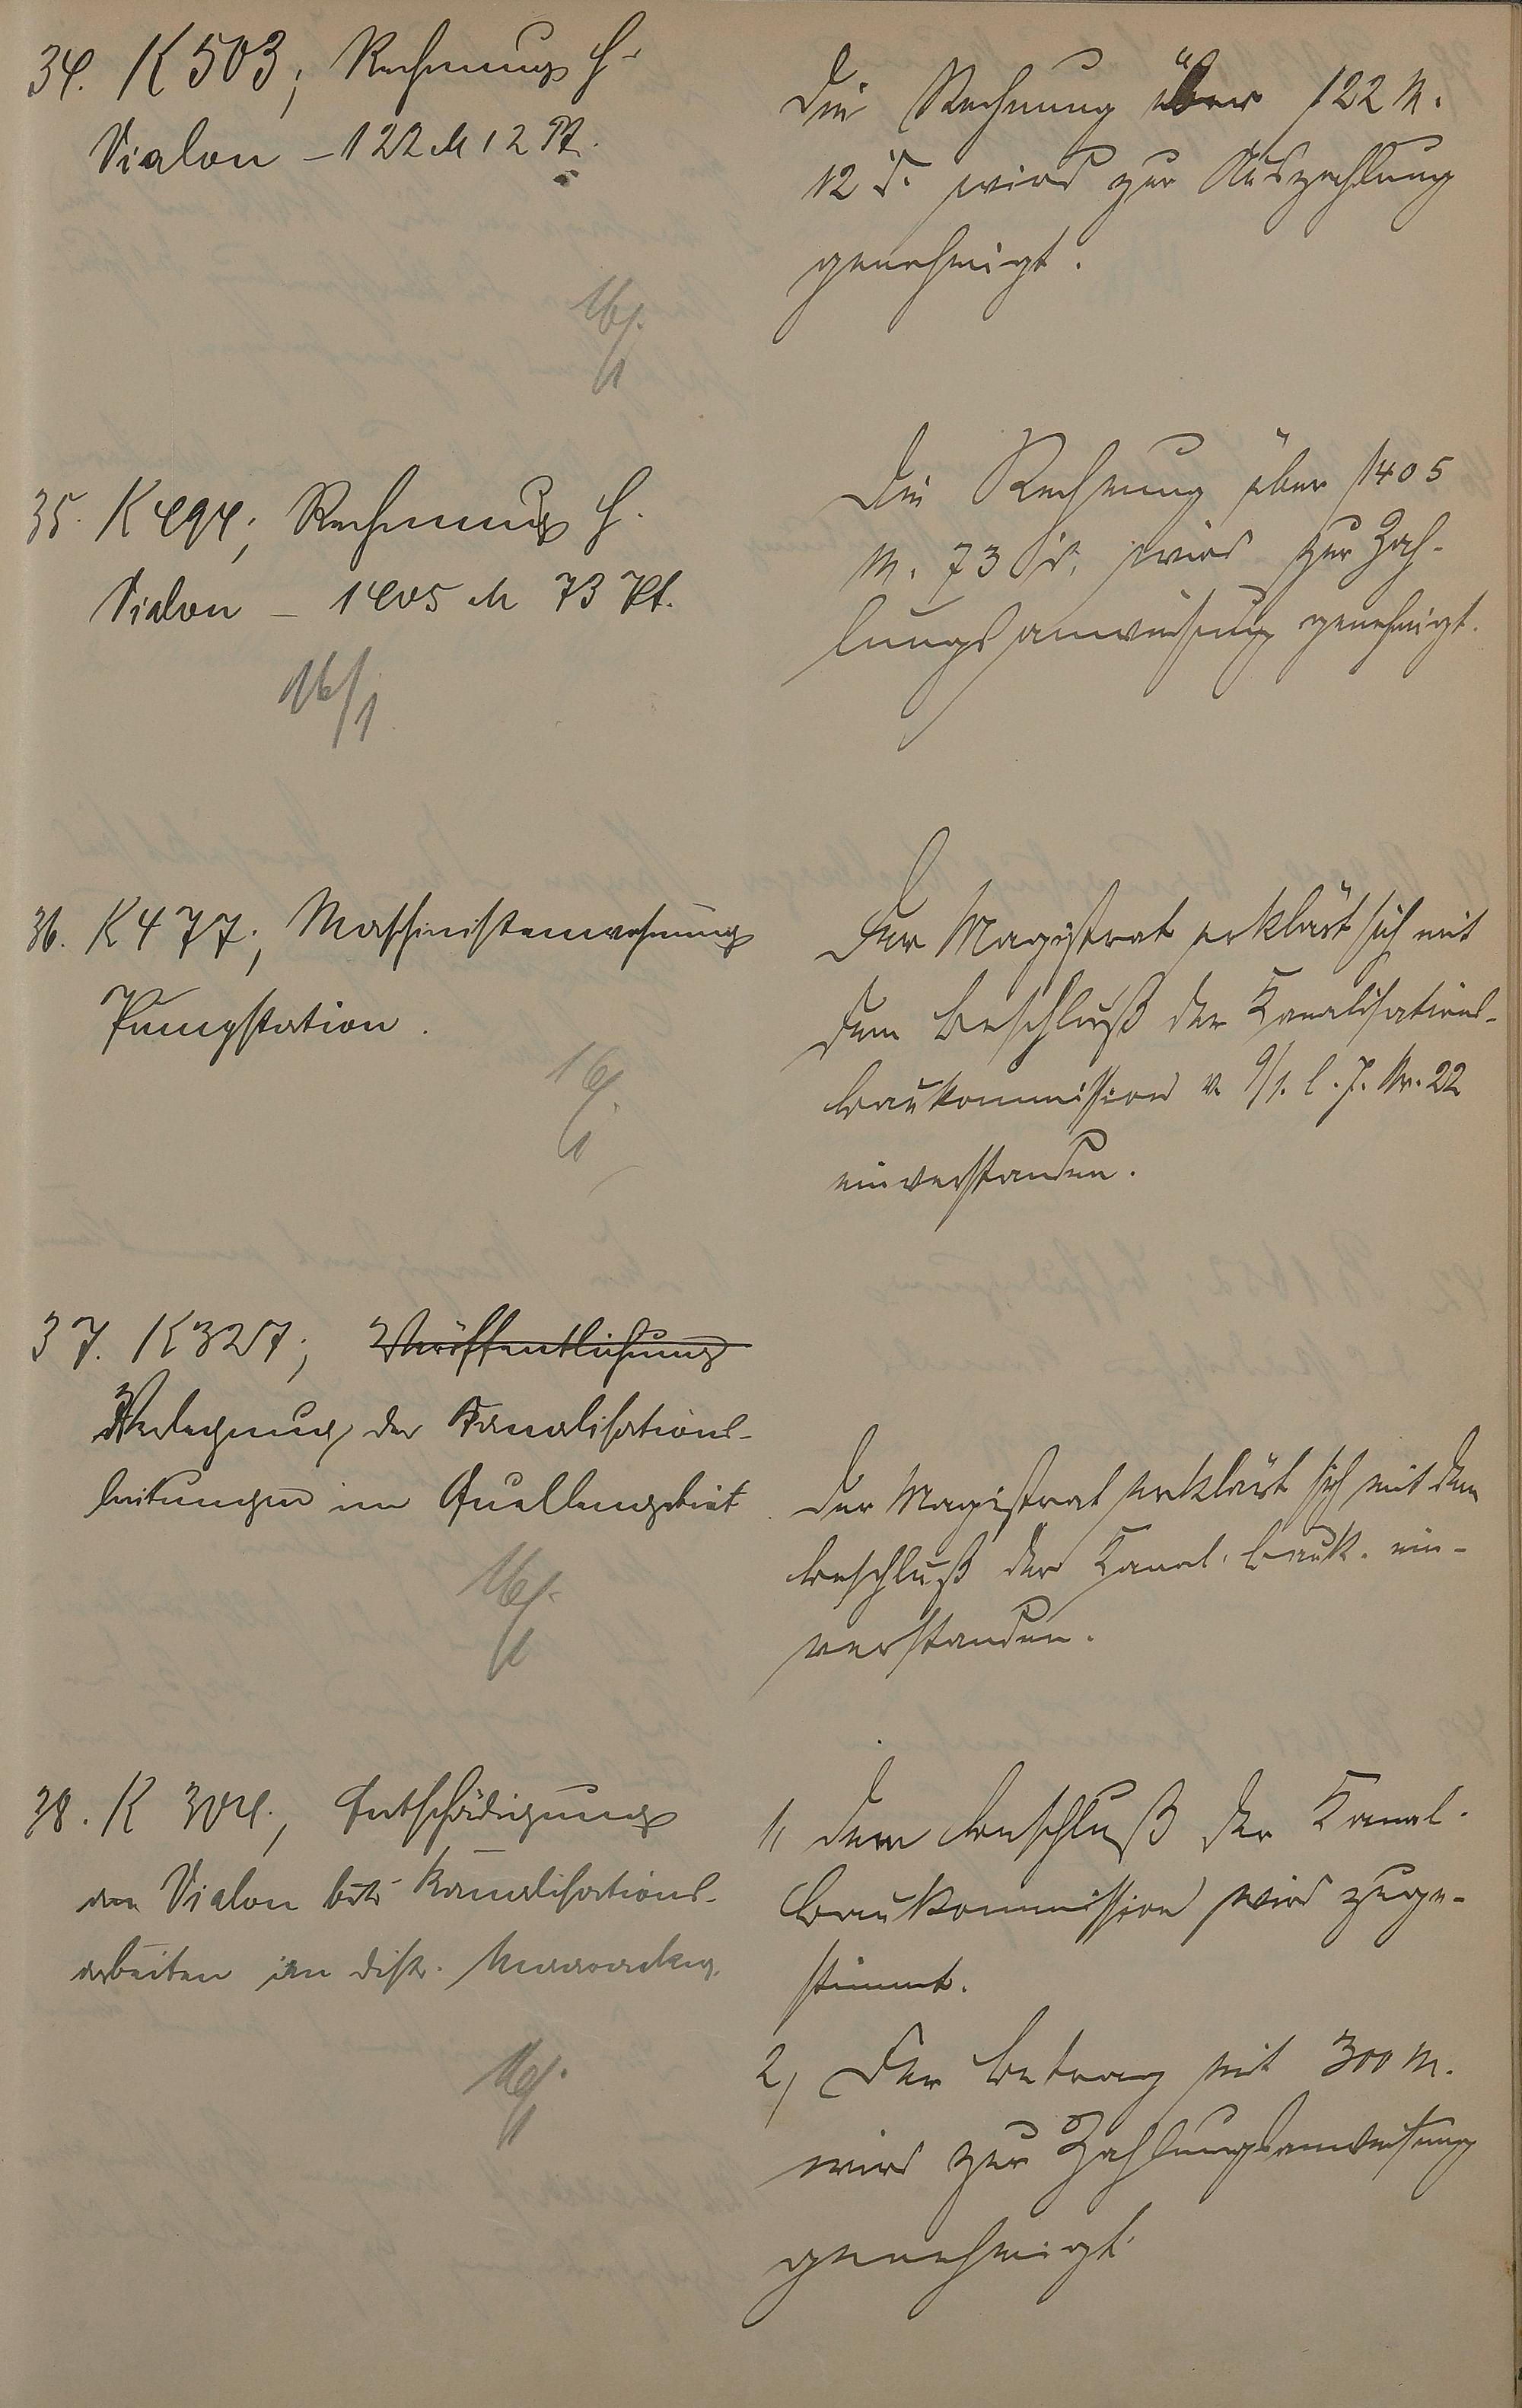 34. K 503; Rechnung H.
Vialon – 122 M 12 Pf.
16/1
Die Rechnung über 122 M.
12 Pf. wird zur Auszahlung
genehmigt.
35. K 494; Rechnung H.
Vialon – 1405 M 73 Pf.
16/1
Die Rechnung über 1405
M. 73 Pf. wird zur Zah-
lungsanweisung genehmigt.
36. K 477; Maschinistenwohnung
Pumpstation.
16/1
Der Magistrat erklärt sich mit
dem Beschluß der Kanalisations-
baukommission v. 9/1. l. J. Nr. 22
einverstanden.
37. K 327; Veröffentlichung
Verlegung der Kanalisations-
leitungen im Quellengebiet
16/1
Der Magistrat erklärt sich mit dem
Beschluß der Kanal. bauk. ein-
verstanden.
38. K 304; Entschädigung
an Vialon bei Kanalisations-
arbeiten im Distr.
16/1
1, Dem Beschluß der Kanal-
baukommission wird zuge-
stimmt.
2, Der Betrag mit 300 M.
wird zur Zahlungsanweisung
genehmigt.